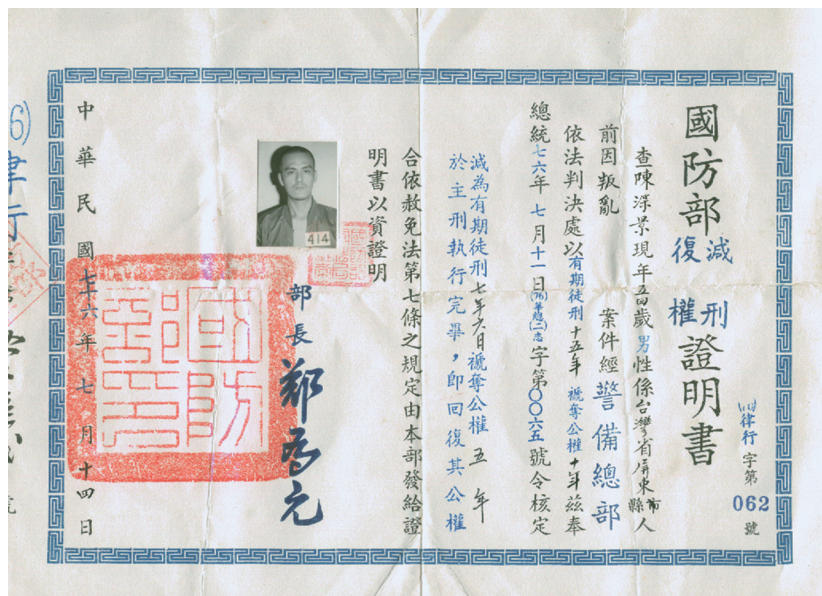 國防部減刑復權證明書
律行字第062號
查陳深景現年 歲男性係台灣省屏東縣市人
前因叛亂 案件經警備總部
依法判決處以有期徒刑十五年褫奪公權十年茲奉
總統七六年七月十一日(76)華總(二)忠字第〇〇六五號令核定
減為有期徒刑七年六日褫奪公權五年
於主刑執行完畢，即回復其公權
合依赦免法第七條之規定由本部發給證
明書以資證明
414
部長鄭為元
國防部印
中華民國七六年七月十四日